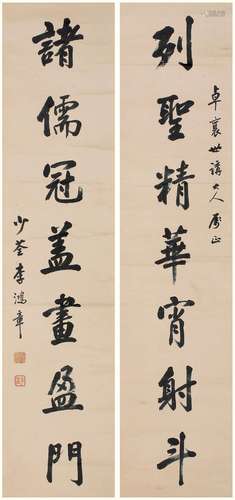 列聖精華宵射斗
卓裹世講大人屬正
諸儒冠蓋晝盈門
少荃李鴻章